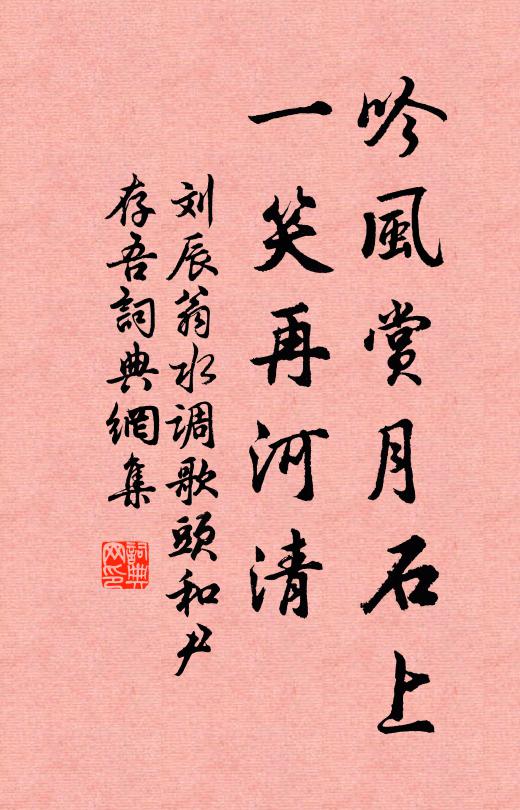 吟風賞月石上
一笑再河清
刘辰翁水调歌頭和尹
存吾詞典網集
詞典
网印